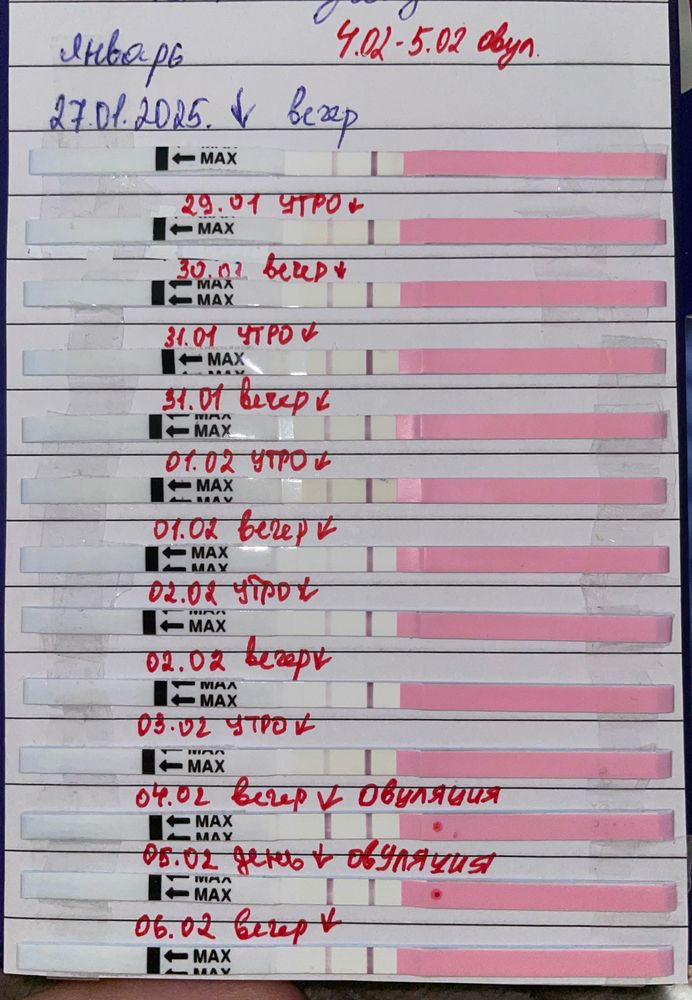 4.02-5.02 овул.
январь
27.01.2025. ↓ вечер
← MAX
29.01 УТРО ↓
← MAX
30.01 вечер ↓
MAX
← MAX
31.01 УТРО ↓
← MAX
31.01 вечер ↓
MAX
← MAX
01.02 УТРО ↓
← MAX
MAX
01.02 вечер ↓
← MAX
MAX
02.02 УТРО ↓
← MAX
02.02 вечер ↓
MAX
← MAX
03.02 УТРО ↓
← MAX
04.02 вечер ↓ овуляция
← MAX
MAX
05.02 день ↓ овуляция
MAX
← MAX
06.02 вечер ↓
← MAX
MAX